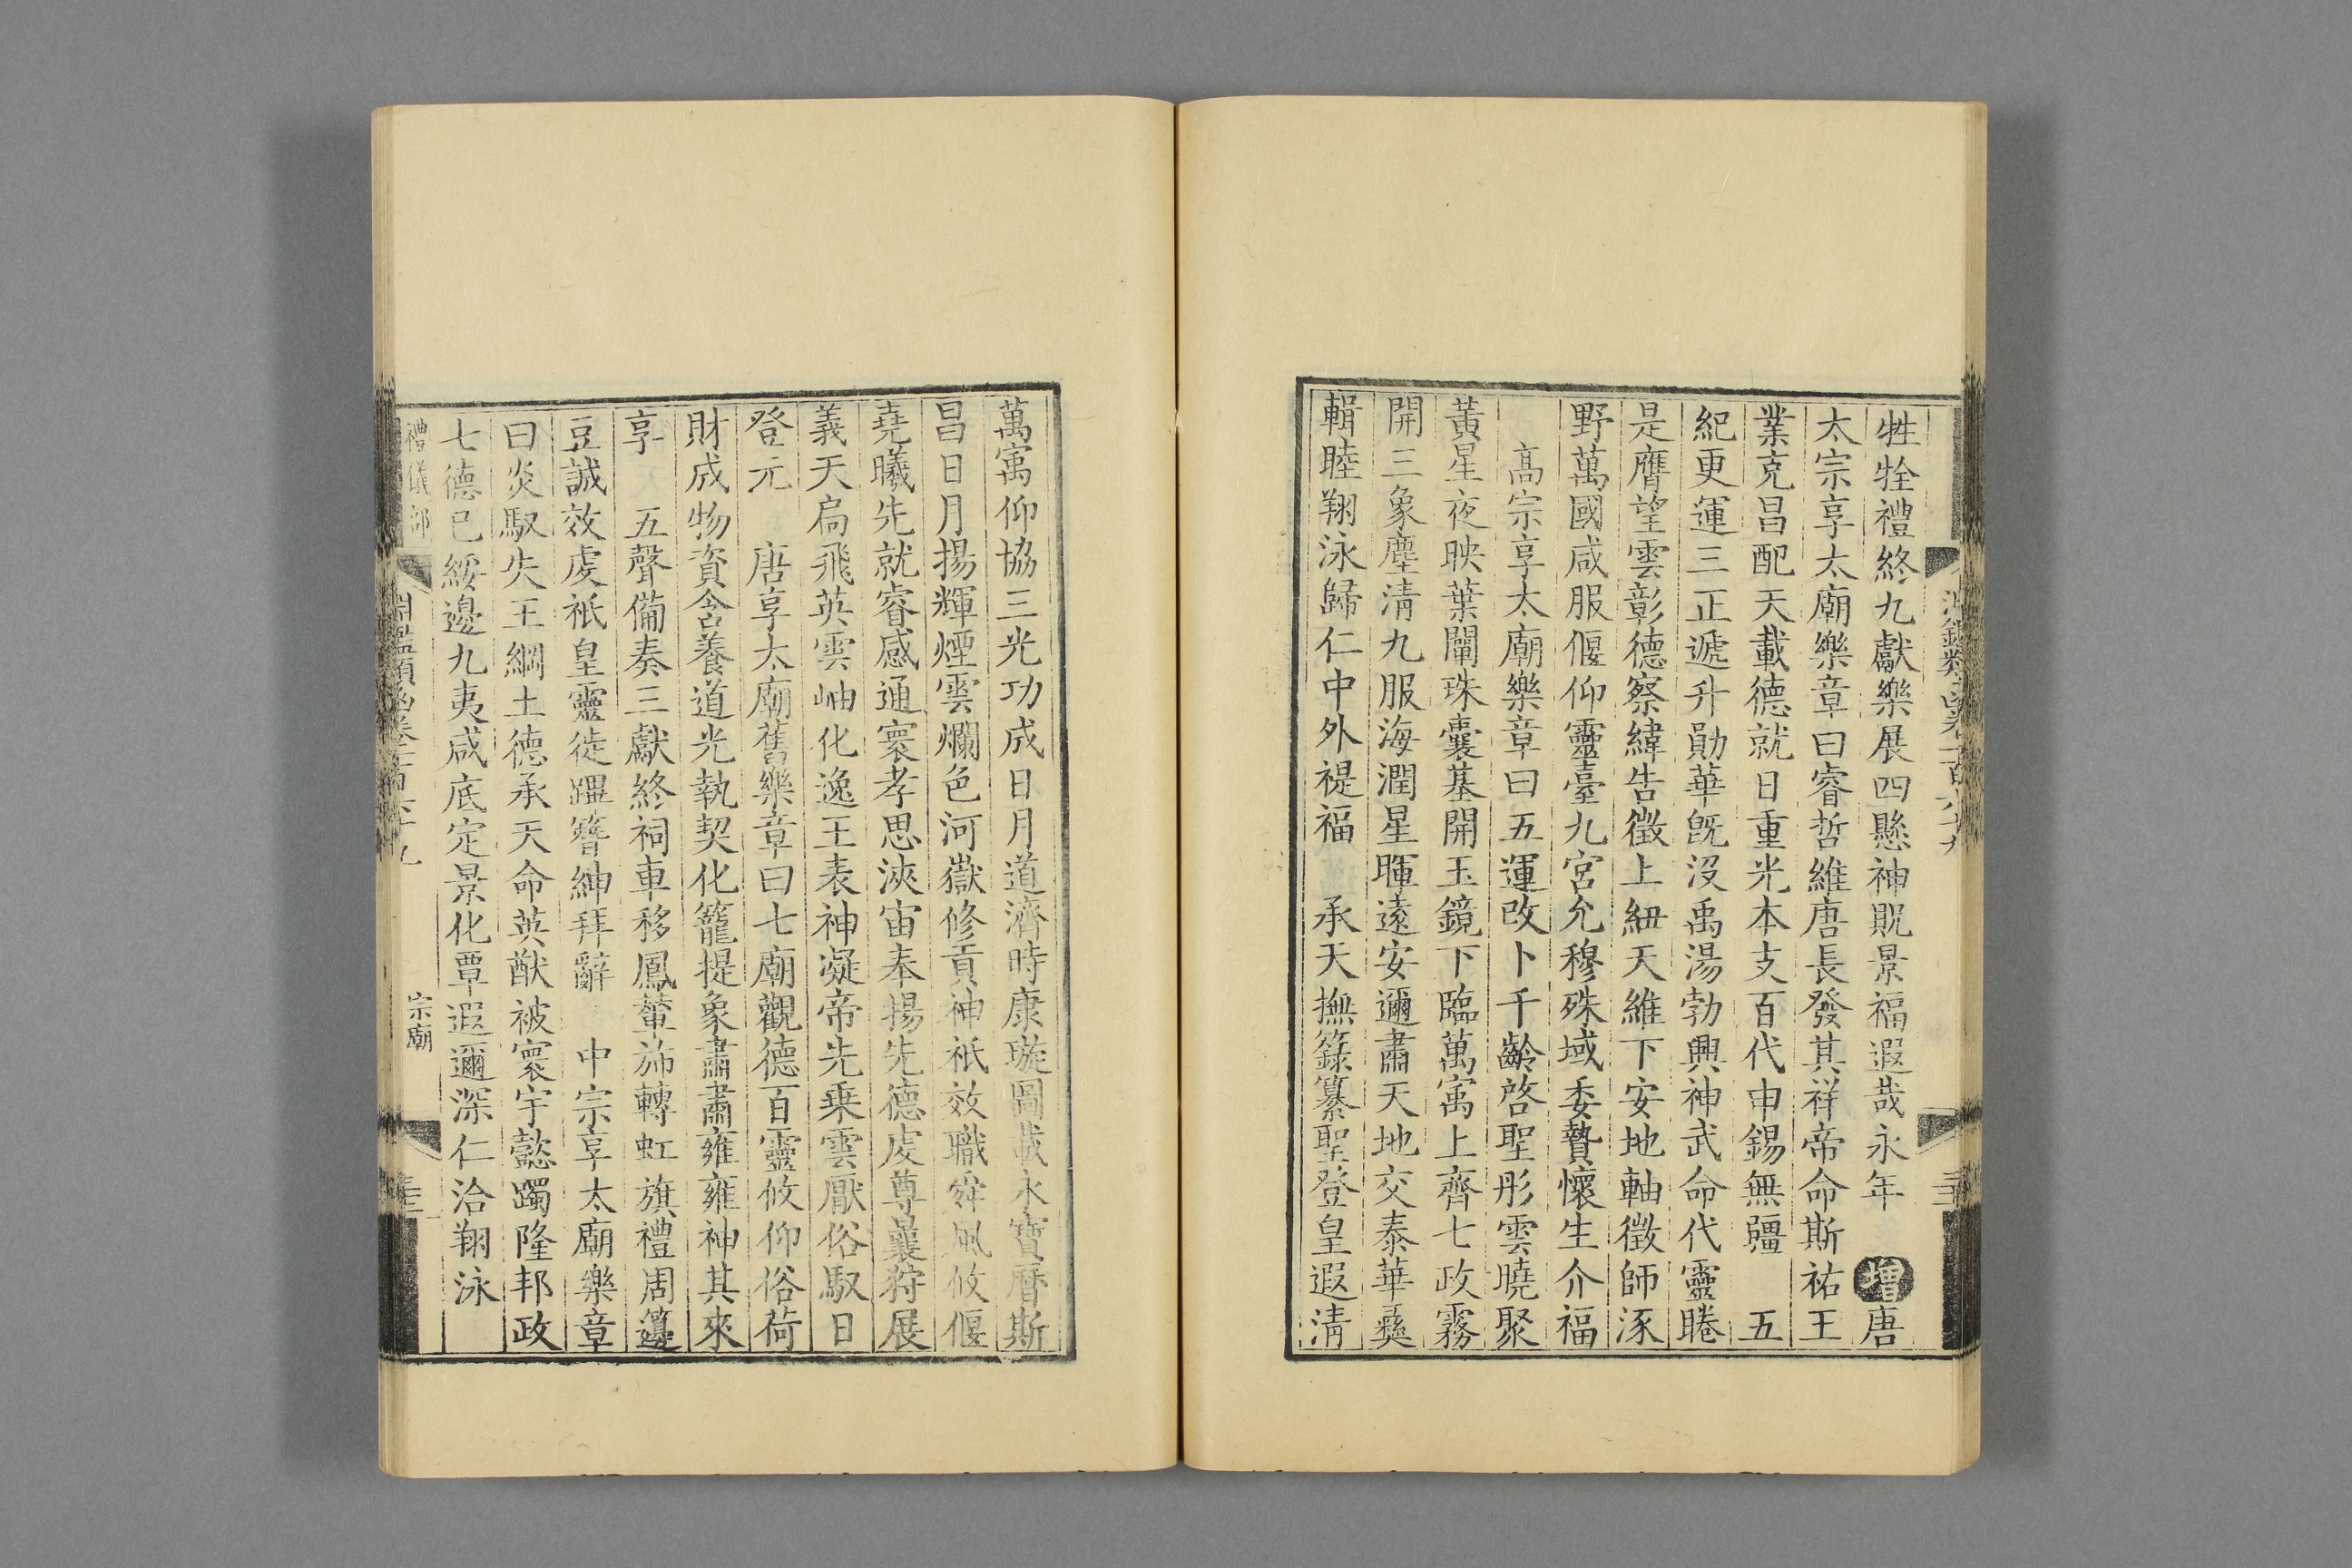 牲牷禮終九獻樂展四懸神貺景福遐哉永年 增唐
太宗享太廟樂章曰睿哲維唐長發其祥帝命斯祐王
業克昌配天載德就日重光本支百代申錫無疆 五
紀更運三正遞升勛華旣沒禹湯勃興神武命代靈睠
是膺望雲彰德察緯告徵上紐天維下安地軸徵師涿
野萬國咸服偃仰靈臺九宮允穆殊域委贄懷生介福
高宗享太廟樂章曰五運改卜千齡啓聖彤雲曉聚
黃星夜映葉闡珠囊基開玉鏡下臨萬㝢上齊七政霧
開三象塵淸九服海潤星暉遠安邇肅天地交泰華彝
輯睦翔泳歸仁中外禔福 承天撫籙纂聖登皇遐淸
萬㝢仰協三光功成日月道濟時康璇圖載永寶曆斯
昌日月揚輝煙雲爛色河嶽修貢神祇效職舜風攸偃
堯曦先就睿感通寰孝思浹宙奉揚先德虔尊曩狩展
義天扃飛英雲岫化逸王表神凝帝先乗雲厭俗馭日
登元 唐享太廟舊樂章曰七廟觀德百靈攸仰俗荷
財成物資含養道光執契化籠提象肅肅雍雍神其來
享 五聲備奏三獻終祠車移鳳輦旆轉虹旗禮周籩
豆誠效虔祇皇靈徙蹕簪紳拜辭 中宗享太廟樂章
曰炎馭失王綱土德承天命英猷被寰宇懿躅隆邦政
七德已綏邊九夷咸底定景化覃遐邇深仁洽翔泳
禮儀部 淵鑑類函卷一百六十九 宗廟 三十三